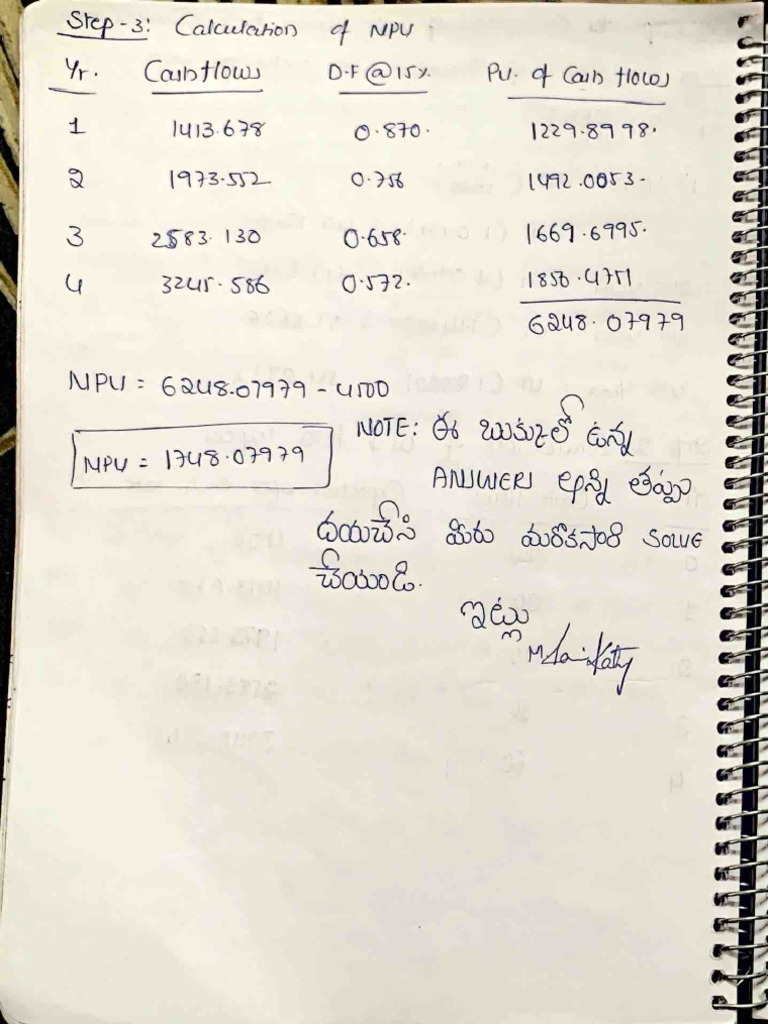 Step-3: Calculation of NPV
Yr. Cash flows D.F @ 15%. PV. of Cash flows
1 1413.678 0.870. 1229.8998.
2 1973.552 0.756 1492.0053.
3 2583.130 0.658. 1669.6995.
4 3245.586 0.572. 1856.4751
6248.07979
NPV = 6248.07979 - 4500
NPV = 1748.07979
NOTE: ఈ బుక్కులో ఉన్న
ANSWERS అన్ని తప్పు
దయచేసి మీరు మరొకసారి SOLVE
చేయండి.
ఇట్లు